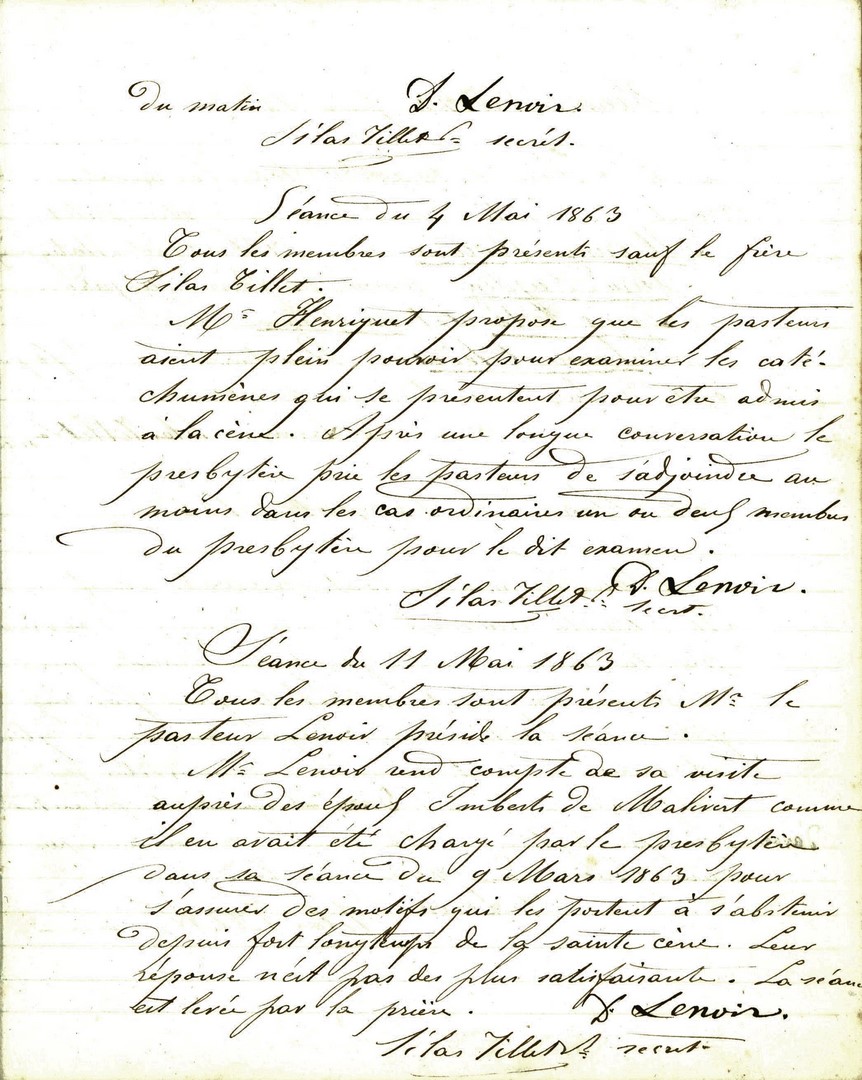 du matin D. Lenoir.
Silas Tillet secrét.
Séance du 4 Mai 1863
Tous les membres sont présents sauf le frère
Silas Tillet.
Mr Henriquet propose que les pasteurs
aient plein pouvoir pour examiner les caté-
chumènes qui se présentent pour être admis
à la cène. Après une longue conversation le
presbytère prie les pasteurs de s'adjoindre au
moins dans les cas ordinaires un ou deux membres
du presbytère pour le dit examen.
D. Lenoir.
Silas Tillet secrt.
Séance du 11 Mai 1863
Tous les membres sont présents Mr le
pasteur Lenoir préside la séance.
Mr Lenoir rend compte de sa visite
auprès des époux Imberts de Malivert comme
il en avait été chargé par le presbytère
dans sa séance du 9 Mars 1863 pour
s'assurer des motifs qui les portent à s'abstenir
depuis fort longtemps de la sainte cène. Leur
réponse n'est pas des plus satisfaisante. La séance
est levée par la prière. D. Lenoir.
Silas Tillet secret.